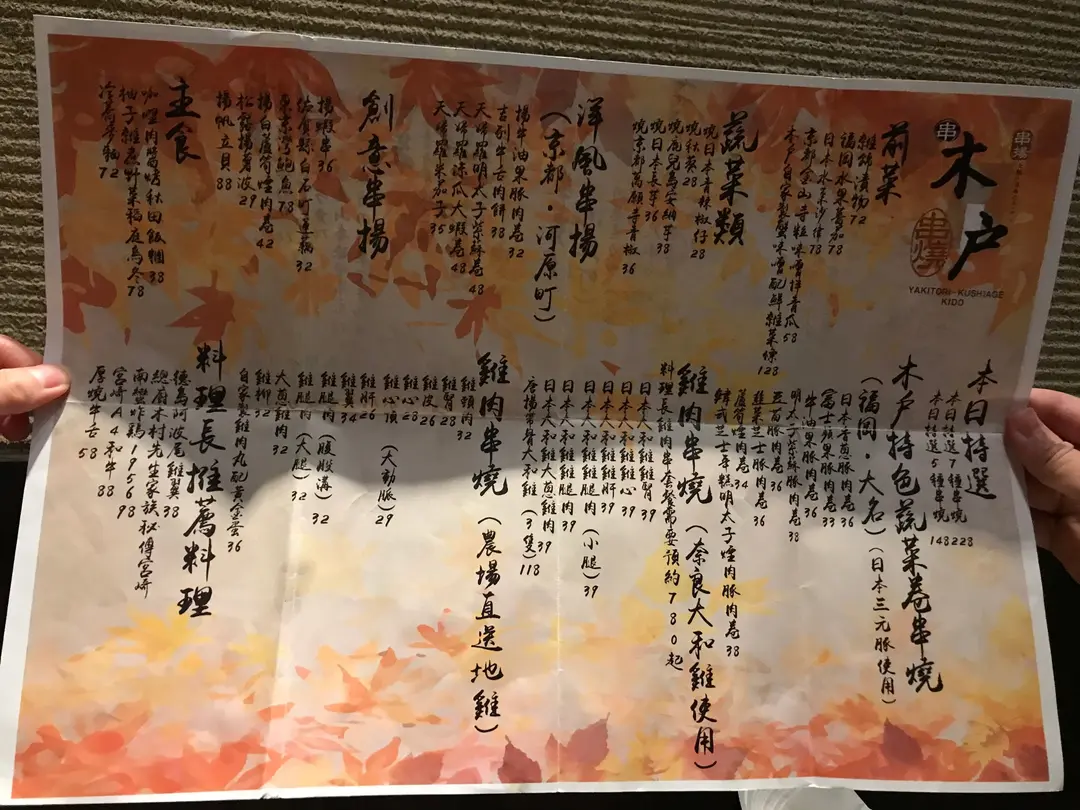 串
木户
串燒
YAKITORI-KUSHIAGE
KIDO
前菜
雜錦漬物72
福岡水果蕃茄78
日本水菜沙律78
京都金山寺粒味噌拌青瓜58
木户自家製蟹味噌配鮮雜菜條128
蔬菜類
燒日本青辣椒仔28
燒秋葵28
燒鹿兒島安納芋38
燒日本長芋36
燒京都萬願寺青椒36
洋風串揚
(京都・河原町)
揚牛油果豚肉卷32
吉列牛舌肉餅38
天婦羅明太子紫蘇卷48
天婦羅涼瓜大蝦卷48
天婦羅茄子35
創意串揚
揚蝦串36
佐賀縣白石町蓮藕32
東京灣鮑魚78
揚白蘆筍煙肉卷42
松露揚蓍波29
揚帆立貝88
主食
咖哩肉醬燒秋田飯糰38
柚子雞湯野菜稻庭烏冬78
冷蕎麥麵72
本日特選
本日特選7種串燒228
本日特選5種串燒148
木户特色蔬菜卷串燒
(福岡・大名)(日本三元豚使用)
日本青蔥豚肉卷36
富士蘋果豚肉卷33
牛油果豚肉卷36
明太子紫蘇豚肉卷38
豚肉卷36
韮菜芝士豚肉卷36
蘆筍煙肉卷34
芝士年糕明太子煙肉豚肉卷38
雞肉串燒(奈良大和雞使用)
料理長雞肉串套餐需要預約780起
日本大和雞腎39
日本大和雞心39
日本大和雞肝39
日本大和雞腿肉(小腿)39
日本大和大蔥雞肉39
唐揚帶骨大和雞(3隻)118
雞肉串燒(農場直送地雞)
雞頸肉32
雞腎28
雞皮26
雞心28
雞心頂(大動脈)29
雞肝26
雞翼34
雞腿肉(腹股溝)32
雞腿肉(大腿)32
大蔥雞肉32
雞柳32
自家製雞肉丸配黃金蛋36
料理長推薦料理
德島阿波尾雞翼38
總廚木村先生家族秘傳宮崎
南蠻炸鷄195698
宮崎A4和牛88
厚燒牛舌58